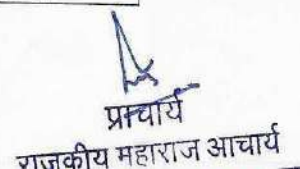 प्राचार्य
राजकीय महाराज आचार्य